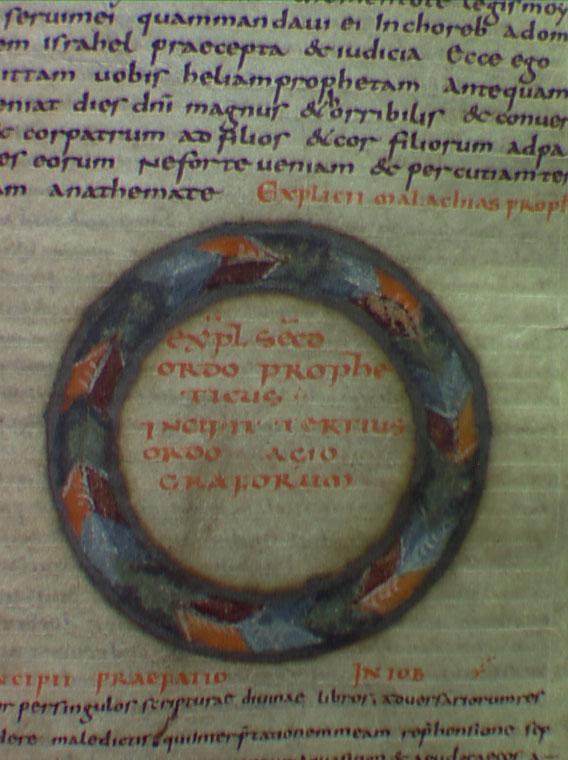 legis moy
seruimei quammandaui ei Inchoreb adom
em israhel praecepta &iudicia Ecce ego
ittam uobis heliamprophetam Antequam
eniat dies dnī magnus &horribilis &conuer
& corpatrum ad filios &cor filiorum adpa
es eorum Neforte ueniam & percutiamter
am anathemate Explicit malachias proph
expl secd
ordo prophe
ticus
incipit tertius
ordo agio
graforum
ncipit praefatio In iob
or persingulos scripturae diuinae libros aduersariorumres
dere maledictis quiInterp̄tationemmeam rep̄hensione sep